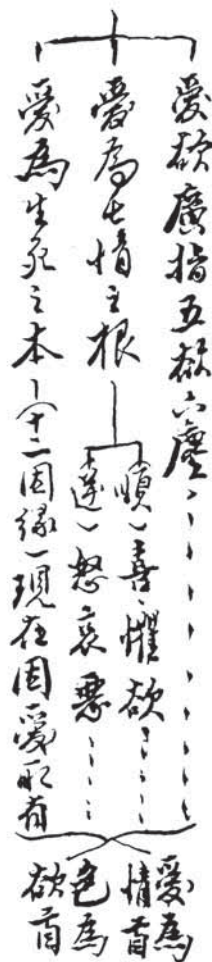 愛欲廣指五欲六塵、、、、、、
愛為七情之根
順）喜、懼欲、、、、
違）怒哀惡、、、、
愛為生死之本—（十二因緣）現在因愛取有
愛為
情首
色為
欲首